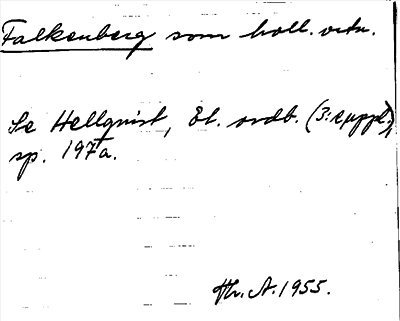 Falkenberg som holl. ortn.
Se Hellquist, Et. ordb. (3: e uppl.),
sp. 197a.
Hr. A. 1955.